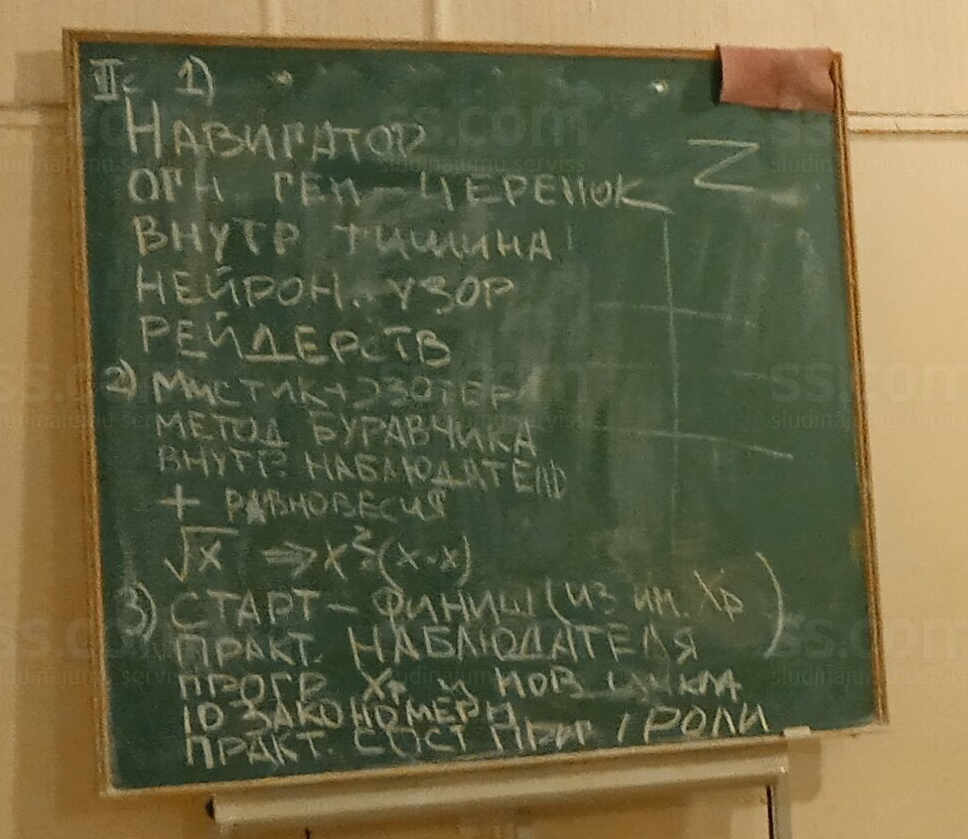 II: 1)
НАВИГАТОР
Z
ОГН ГЕН - ЧЕРЕНОК
ВНУТР ТИШИНА!
НЕЙРОН. УЗОР
РЕЙДЕРСТВ
2) МИСТИК+ЭЗОТЕР
МЕТОД БУРАВЧИКА
ВНУТР. НАБЛЮДАТЕЛЬ
+ РАВНОВЕСИЯ
√x ⇒ x² (x·x)
3) СТАРТ - ФИНИШ (ИЗ ИМ. Хр)
ПРАКТ. НАБЛЮДАТЕЛЯ
ПРОГР Хр И НОВ ЦИКЛА
10 ЗАКОНОМЕРН
ПРАКТ. СОСТ ПРИ / РОЛИ
ss.com
sludinājumu serviss